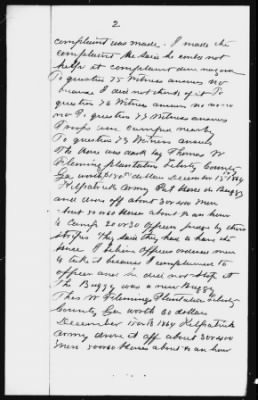 2
complaint was made. I made the
complaint he said he could not
help it complaint done no good
To question 75 Witness answers no
because I did not think of it To
question 76 Witness answers no no no
no To question 77 Witness answers
Troops were campd nearby
To question 78 Witness answers
The Horse was took by Thomas W
Fleming plantation Liberty County
Ga worth dollars December 15th 1864
Kilpatrick army Put Horse in Buggy
and drove off about 300 400 men
but 50 or 60 Horses about ½ an hour
to Camp 20 or 30 Officers judge by there
stripes They said they have to have the
horse I believe officer ordered men
to take it because I complained to
officer and he did not stop it
The Buggy was a new Buggy
Thos W Flemings Plantation Liberty
County Ga worth 60 dollars
December 15 1864 Kilpatrick
army drove it off about 300 400
men 50 or 60 Horses about ½ an hour